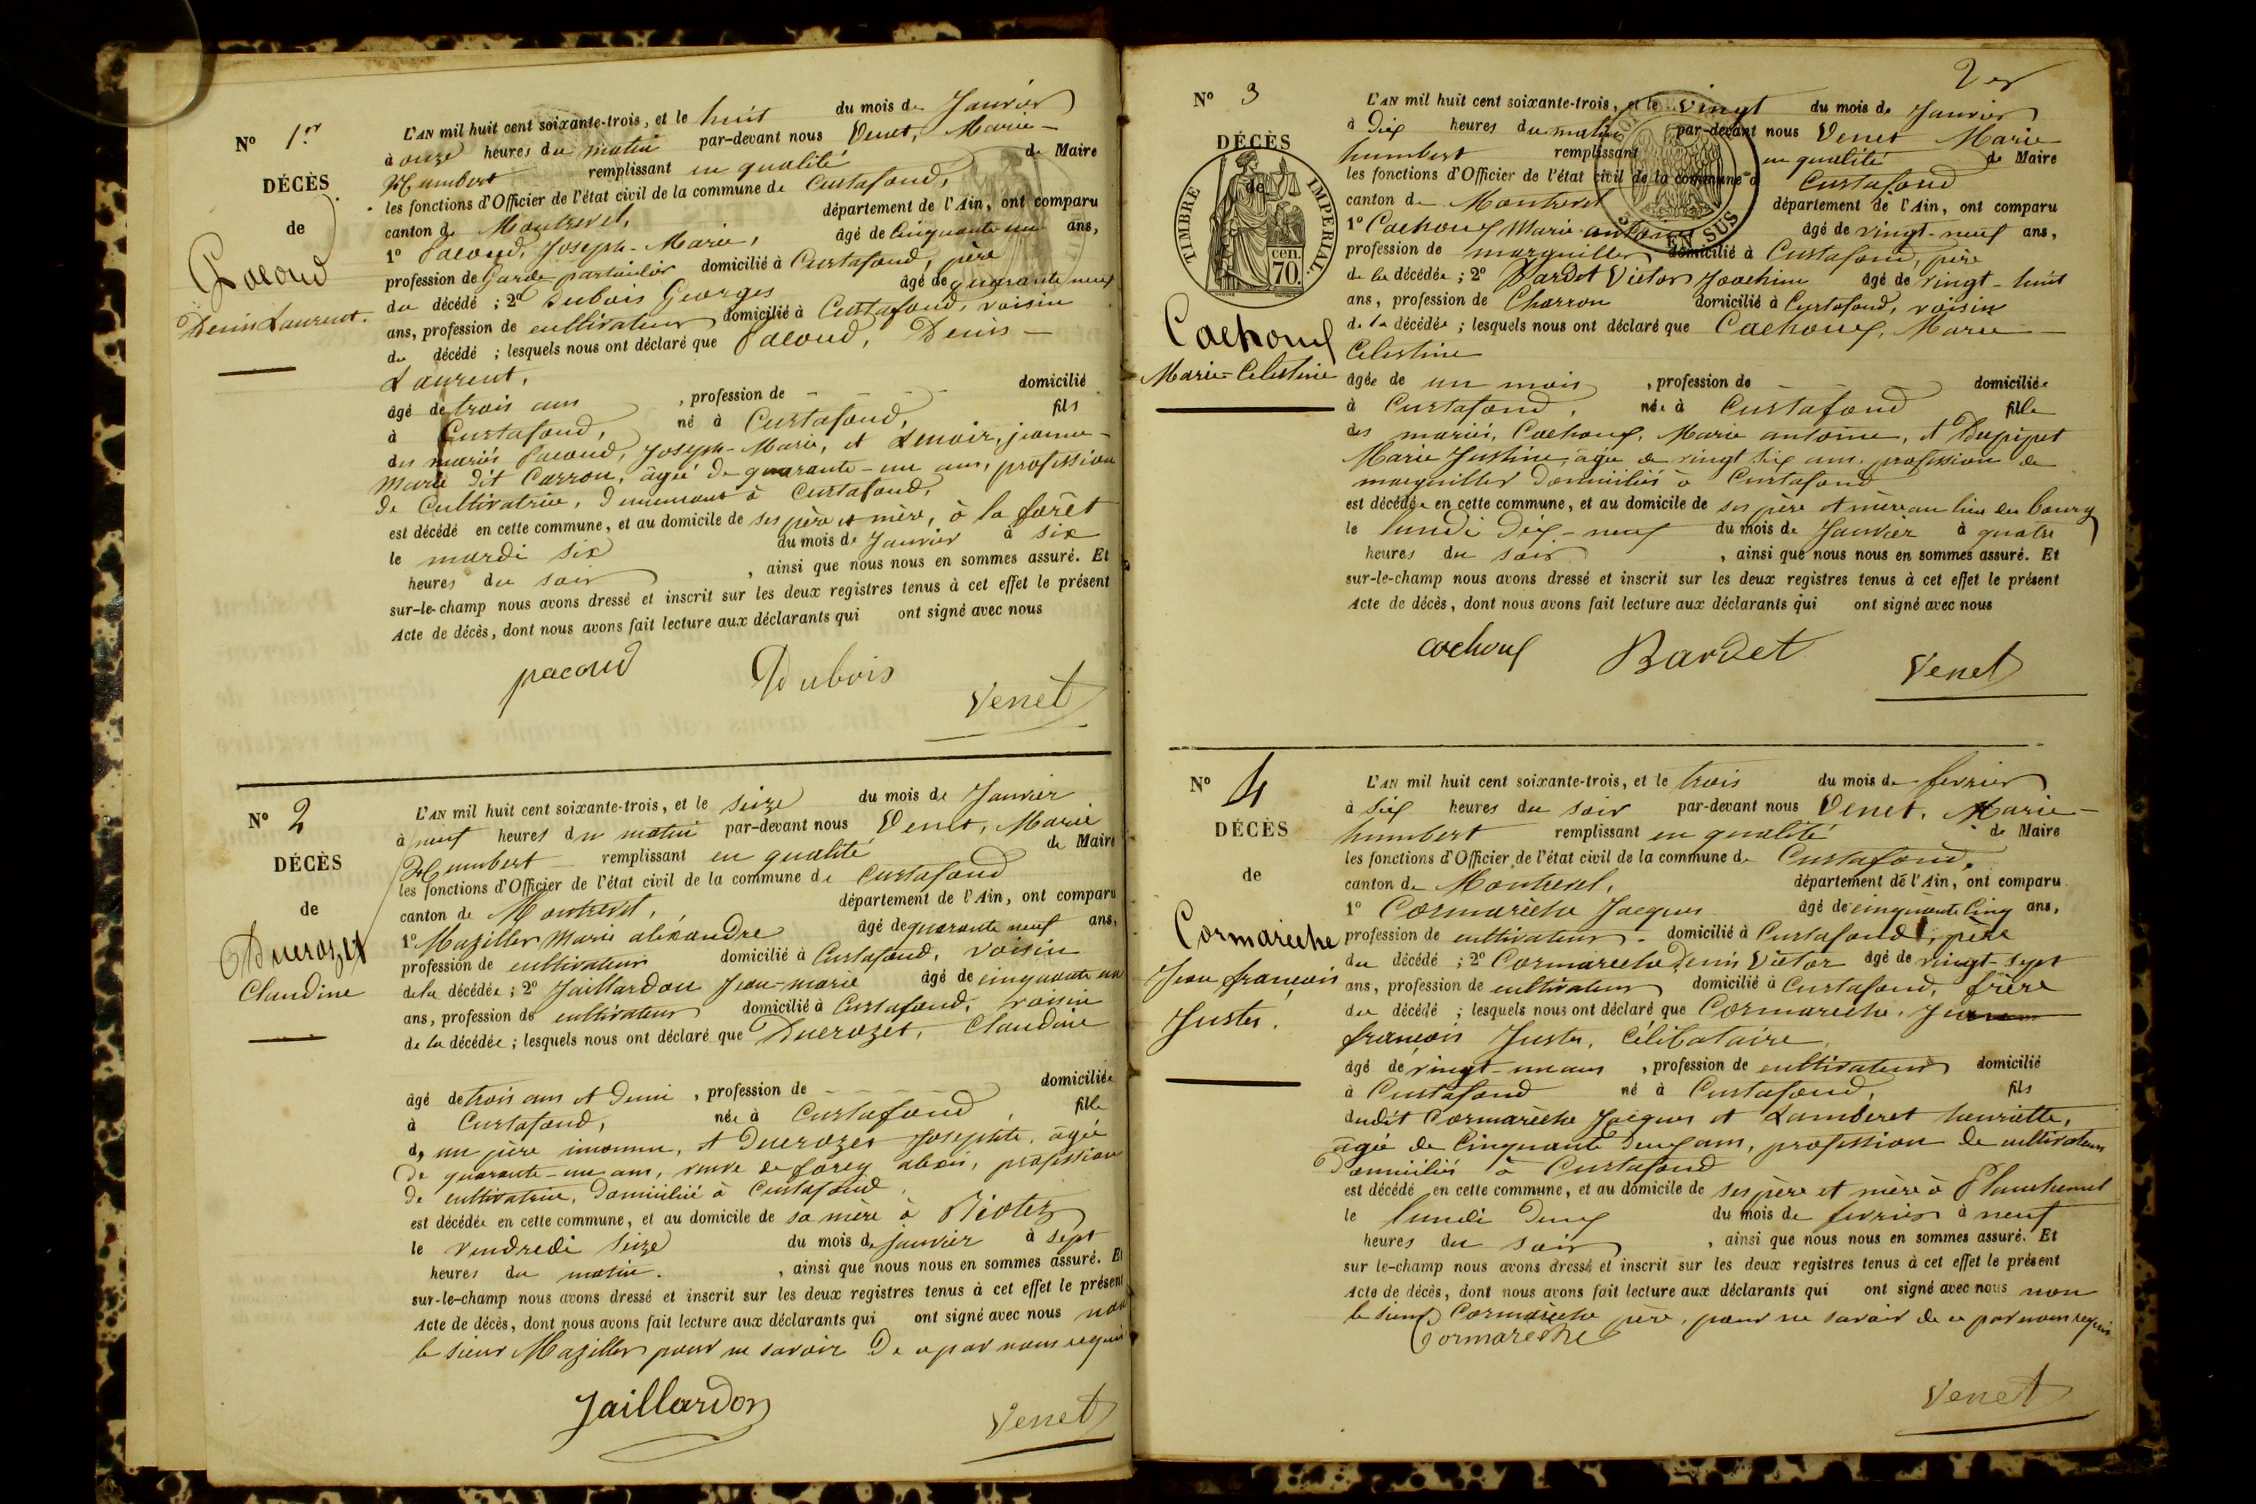 Nº 1.er
DÉCÈS
de
Pacoud
Denis Laurent.
L'AN mil huit cent soixante-trois, et le huit du mois de Janvier
à onze heures du matin par-devant nous Venet, Marie-
Humbert remplissant en qualité de Maire
les fonctions d'Officier de l'état civil de la commune de Curtafond,
canton de Montrevel, département de l'Ain, ont comparu
1º Pacoud, Joseph-Marie, âgé de Cinquante un ans,
profession de Garde particulier domicilié à Curtafond, père
du décédé ; 2º Dubois Georges âgé de quarante neuf
ans, profession de cultivateur domicilié à Curtafond, voisin
du décédé ; lesquels nous ont déclaré que Pacoud, Denis-
Laurent,
âgé de trois ans , profession de domicilié
à Curtafond, né à Curtafond, fils
des mariés Pacoud, Joseph-Marie, et Lenoir, jeanne-
Marie dit Carron, âgée de quarante-un ans, profession
de Cultivatrice, demeurant à Curtafond,
est décédé en cette commune, et au domicile de ses père et mère, à la forêt
le mardi six du mois de Janvier à six
heures du soir , ainsi que nous nous en sommes assuré. Et
sur-le-champ nous avons dressé et inscrit sur les deux registres tenus à cet effet le présent
Acte de décès, dont nous avons fait lecture aux déclarants qui ont signé avec nous
pacoud Dubois Venet
Nº 2
DÉCÈS
de
Ducrozet
Claudine
L'AN mil huit cent soixante-trois, et le seize du mois de Janvier
à neuf heures du matin par-devant nous Venet, Marie
Humbert remplissant en qualité de Maire
les fonctions d'Officier de l'état civil de la commune de Curtafond
canton de Montrevel, département de l'Ain, ont comparu
1º Maziller Marie alexandre âgé de quarante neuf ans,
profession de cultivateur domicilié à Curtafond, voisin
de la décédée ; 2º Jaillardon Jean-marie âgé de cinquante un
ans, profession de cultivateur domicilié à Curtafond, voisin
de la décédée ; lesquels nous ont déclaré que Ducrozet, Claudine
âgé de trois ans et demi , profession de domiciliée
à Curtafond, née à Curtafond, fille
d'un père inconnu, et Ducrozet Josephte, âgée
de quarante-un ans, veuve de forey alexis, profession
de cultivatrice, domiciliée à Curtafond,
est décédée en cette commune, et au domicile de sa mère à
le vendredi seize du mois de janvier à sept
heures du matin. , ainsi que nous nous en sommes assuré. Et
sur-le-champ nous avons dressé et inscrit sur les deux registres tenus à cet effet le présent
Acte de décès, dont nous avons fait lecture aux déclarants qui ont signé avec nous non
le sieur Maziller pour ne savoir de ce par nous requis
Jaillardon Venet
Nº 3
DÉCÈS
de
TIMBRE IMPERIAL.
cen. 70.
EN SUS
Cachoux
Marie-Celestine
L'AN mil huit cent soixante-trois, et le vingt du mois de Janvier
à Dix heures du matin par-devant nous Venet Marie
humbert remplissant en qualité de Maire
les fonctions d'Officier de l'état civil de la commune d Curtafond
canton de Montrevel département de l'Ain, ont comparu
1º Cachoux Marie antoine âgé de vingt-neuf ans,
profession de marguiller domicilié à Curtafond, père
de la décédée ; 2º Bardet Victor Joachim âgé de vingt-huit
ans, profession de Charron domicilié à Curtafond, voisin
de la décédée ; lesquels nous ont déclaré que Cachoux, Marie-
Celestine
âgée de un mois , profession de domiciliée
à Curtafond, née à Curtafond fille
des mariés, Cachoux, Marie antoine, et Dupipet
Marie Justine, âgée de vingt six ans, profession de
marguiller domiciliés à Curtafond
est décédée en cette commune, et au domicile de ses père et mère au lieu du bourg
le lundi Dix-neuf du mois de Janvier à quatre
heures du soir , ainsi que nous nous en sommes assuré. Et
sur-le-champ nous avons dressé et inscrit sur les deux registres tenus à cet effet le présent
Acte de décès, dont nous avons fait lecture aux déclarants qui ont signé avec nous
cochoux Bardet Venet
Nº 4
DÉCÈS
de
Cormarèche
Jean françois
Juste.
L'AN mil huit cent soixante-trois, et le trois du mois de fevrier
à six heures du soir par-devant nous Venet, Marie-
humbert remplissant en qualité de Maire
les fonctions d'Officier de l'état civil de la commune de Curtafond,
canton de Montrevel, département de l'Ain, ont comparu
1º Cormarèche Jacques âgé de cinquante Cinq ans,
profession de cultivateur domicilié à Curtafond, père
du décédé ; 2º Cormareche Denis Victor âgé de vingt-sept
ans, profession de cultivateur domicilié à Curtafond, frère
du décédé ; lesquels nous ont déclaré que Cormareche, Jean
françois Juste, Célibataire,
âgé de vingt-un ans , profession de cultivateur domicilié
à Curtafond né à Curtafond, fils
dudit Cormarèche Jacques et Lamberet henriette,
âgée de Cinquante deux ans, profession de cultivateurs
domiciliés à Curtafond
est décédé en cette commune, et au domicile de ses père et mère à
le lundi Deux du mois de fevrier à neuf
heures du soir , ainsi que nous nous en sommes assuré. Et
sur le-champ nous avons dressé et inscrit sur les deux registres tenus à cet effet le présent
Acte de décès, dont nous avons fait lecture aux déclarants qui ont signé avec nous non
le sieur Cormarèche père, pour ne savoir de ce par nous requis
Cormareche
Venet